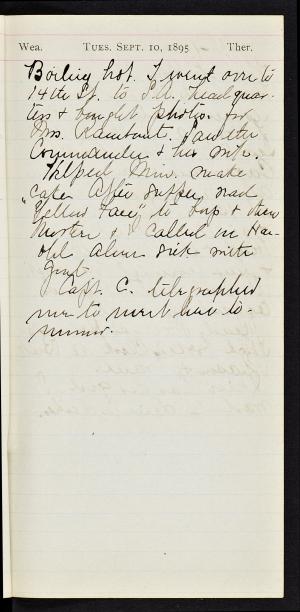 Wea. TUES. SEPT. 10, 1895 Ther.
Boiling hot. I went over to
14th St. to S.A. Headquar-
ters & bought photos. for
Mrs. Rambaut. Saw the
Commander & his wife.
Helped Minn. make
cake. After supper read
"Yellow Face", to Pop & then
& I called on Har-
old Alvin sick with
Capt. C. telegraphed
me to meet her to-
morrow.